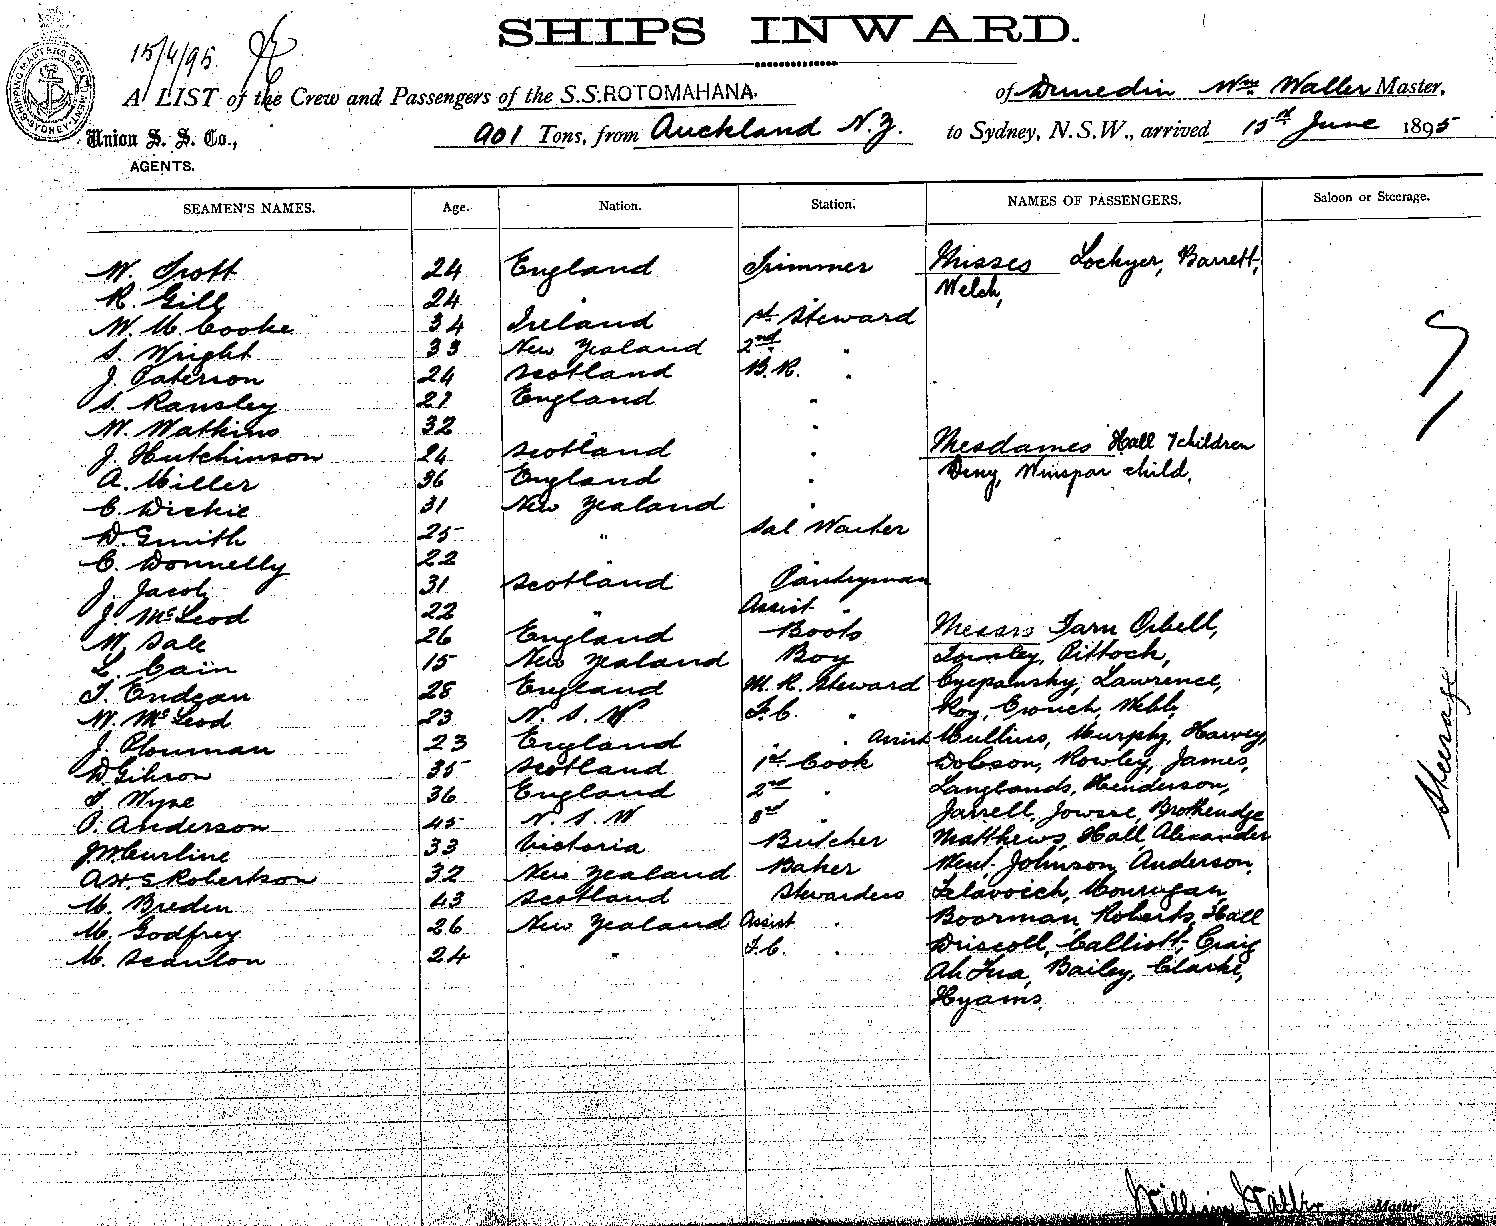 SHIPS INWARD.
15/4/95
A LIST of the Crew and Passengers of the S.S. ROTOMAHANA. of Dunedin Wm Waller Master,
Union S. S. Co., 901 Tons, from Auckland N.Z. to Sydney, N.S.W., arrived 15th June 1895
AGENTS.
SEAMEN'S NAMES. Age. Nation. Station. NAMES OF PASSENGERS. Saloon or Steerage.
W. Trott 24 England Trimmer Misses Lockyer, Barrett,
R. Gill 24 " " Welch,
W. M. Cooke 34 Ireland 1st Steward
S. Wright 33 New Zealand 2nd "
J. Paterson 24 Scotland B.R. "
S. Ransley 27 England "
W. Watkins 32 " "
J. Hutchinson 24 Scotland " Mesdames Hall 7 children
A. Miller 36 England " Deny, Winspar child.
C. Dickie 31 New Zealand "
D. Smith 25 " Sal Waiter
C. Donnelly 22
J. Jacob 31 Scotland Pantryman
J. McLeod 22 " Assist "
W. Sale 26 England Boots Messrs Tarn, Orbell,
L. Cain 15 New Zealand Boy Pittock,
T. Endean 28 England M. R. Steward Lawrence,
W. McLeod 23 N. S. W F.C. " Roy, Crouch, Webb,
J. Plowman 23 England " " Assist Mullins, Murphy, Harvey,
D Gibson 35 Scotland 1st Cook Dobson, Rowley, James,
T Wyse 36 England 2nd " Langlands, Henderson,
P. Anderson 45 N. S. W 3rd " Jarrell,
J W Curline 33 Victoria Butcher Matthews, Hall Alexander
A.H.S Robertson 32 New Zealand Baker Johnson, Anderson,
M. Breden 43 Scotland Stewardess
M. Godfrey 26 New Zealand Assist " Boorman, Roberts, Hall
M. Scanlon 24 " F.C. " Driscoll, Calliott, Craig
Bailey, Clarke,
Hyams.
Steerage
William Waller Master